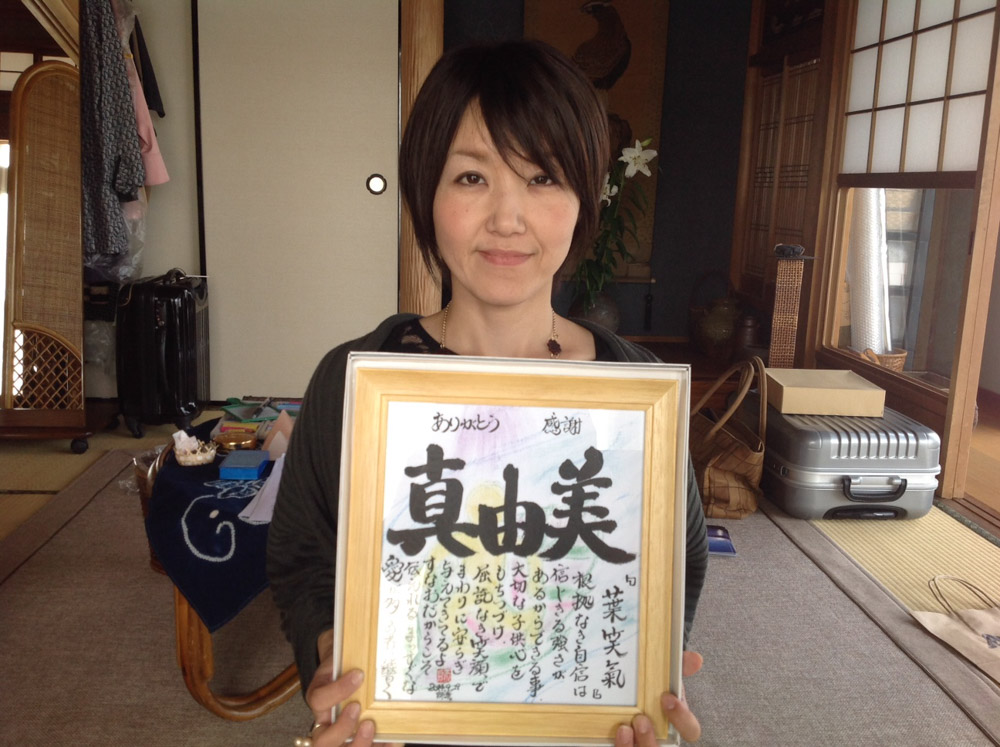 ありがとう 感謝
真由美
「葉笑氣」
根拠なき自信は
信じきる強さが
あるからできる事
大切な子供心を
もちつづけ
屈託なき笑顔で
まわりに安らぎ
与えてきてるよ
すなおだからこそ